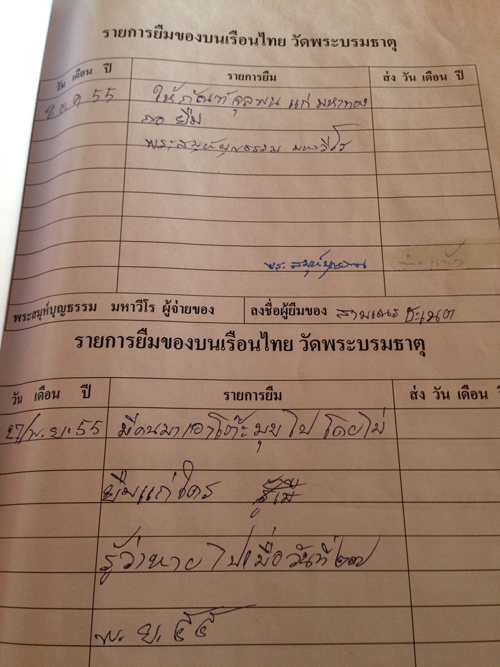 รายการยืมของบนเรือนไทย วัดพระบรมธาตุ
วัน เดือน ปี รายการยืม ส่ง วัน เดือน ปี
55 ให้ แก่
ยืม
พระสมุห์บุญธรรม มหาวีโร
พระสมุห์บุญธรรม มหาวีโร ผู้จ่ายของ ลงชื่อผู้ยืมของ สามเณร
รายการยืมของบนเรือนไทย วัดพระบรมธาตุ
วัน เดือน ปี รายการยืม ส่ง วัน เดือน
27/พ.ย.55 มีคนมาเอาโต๊ะมุขไป โดยไม่
ยืมแก่ใคร
รู้ว่าหายไปเมื่อวันที่ ๒๗
พ.ย. ๕๕